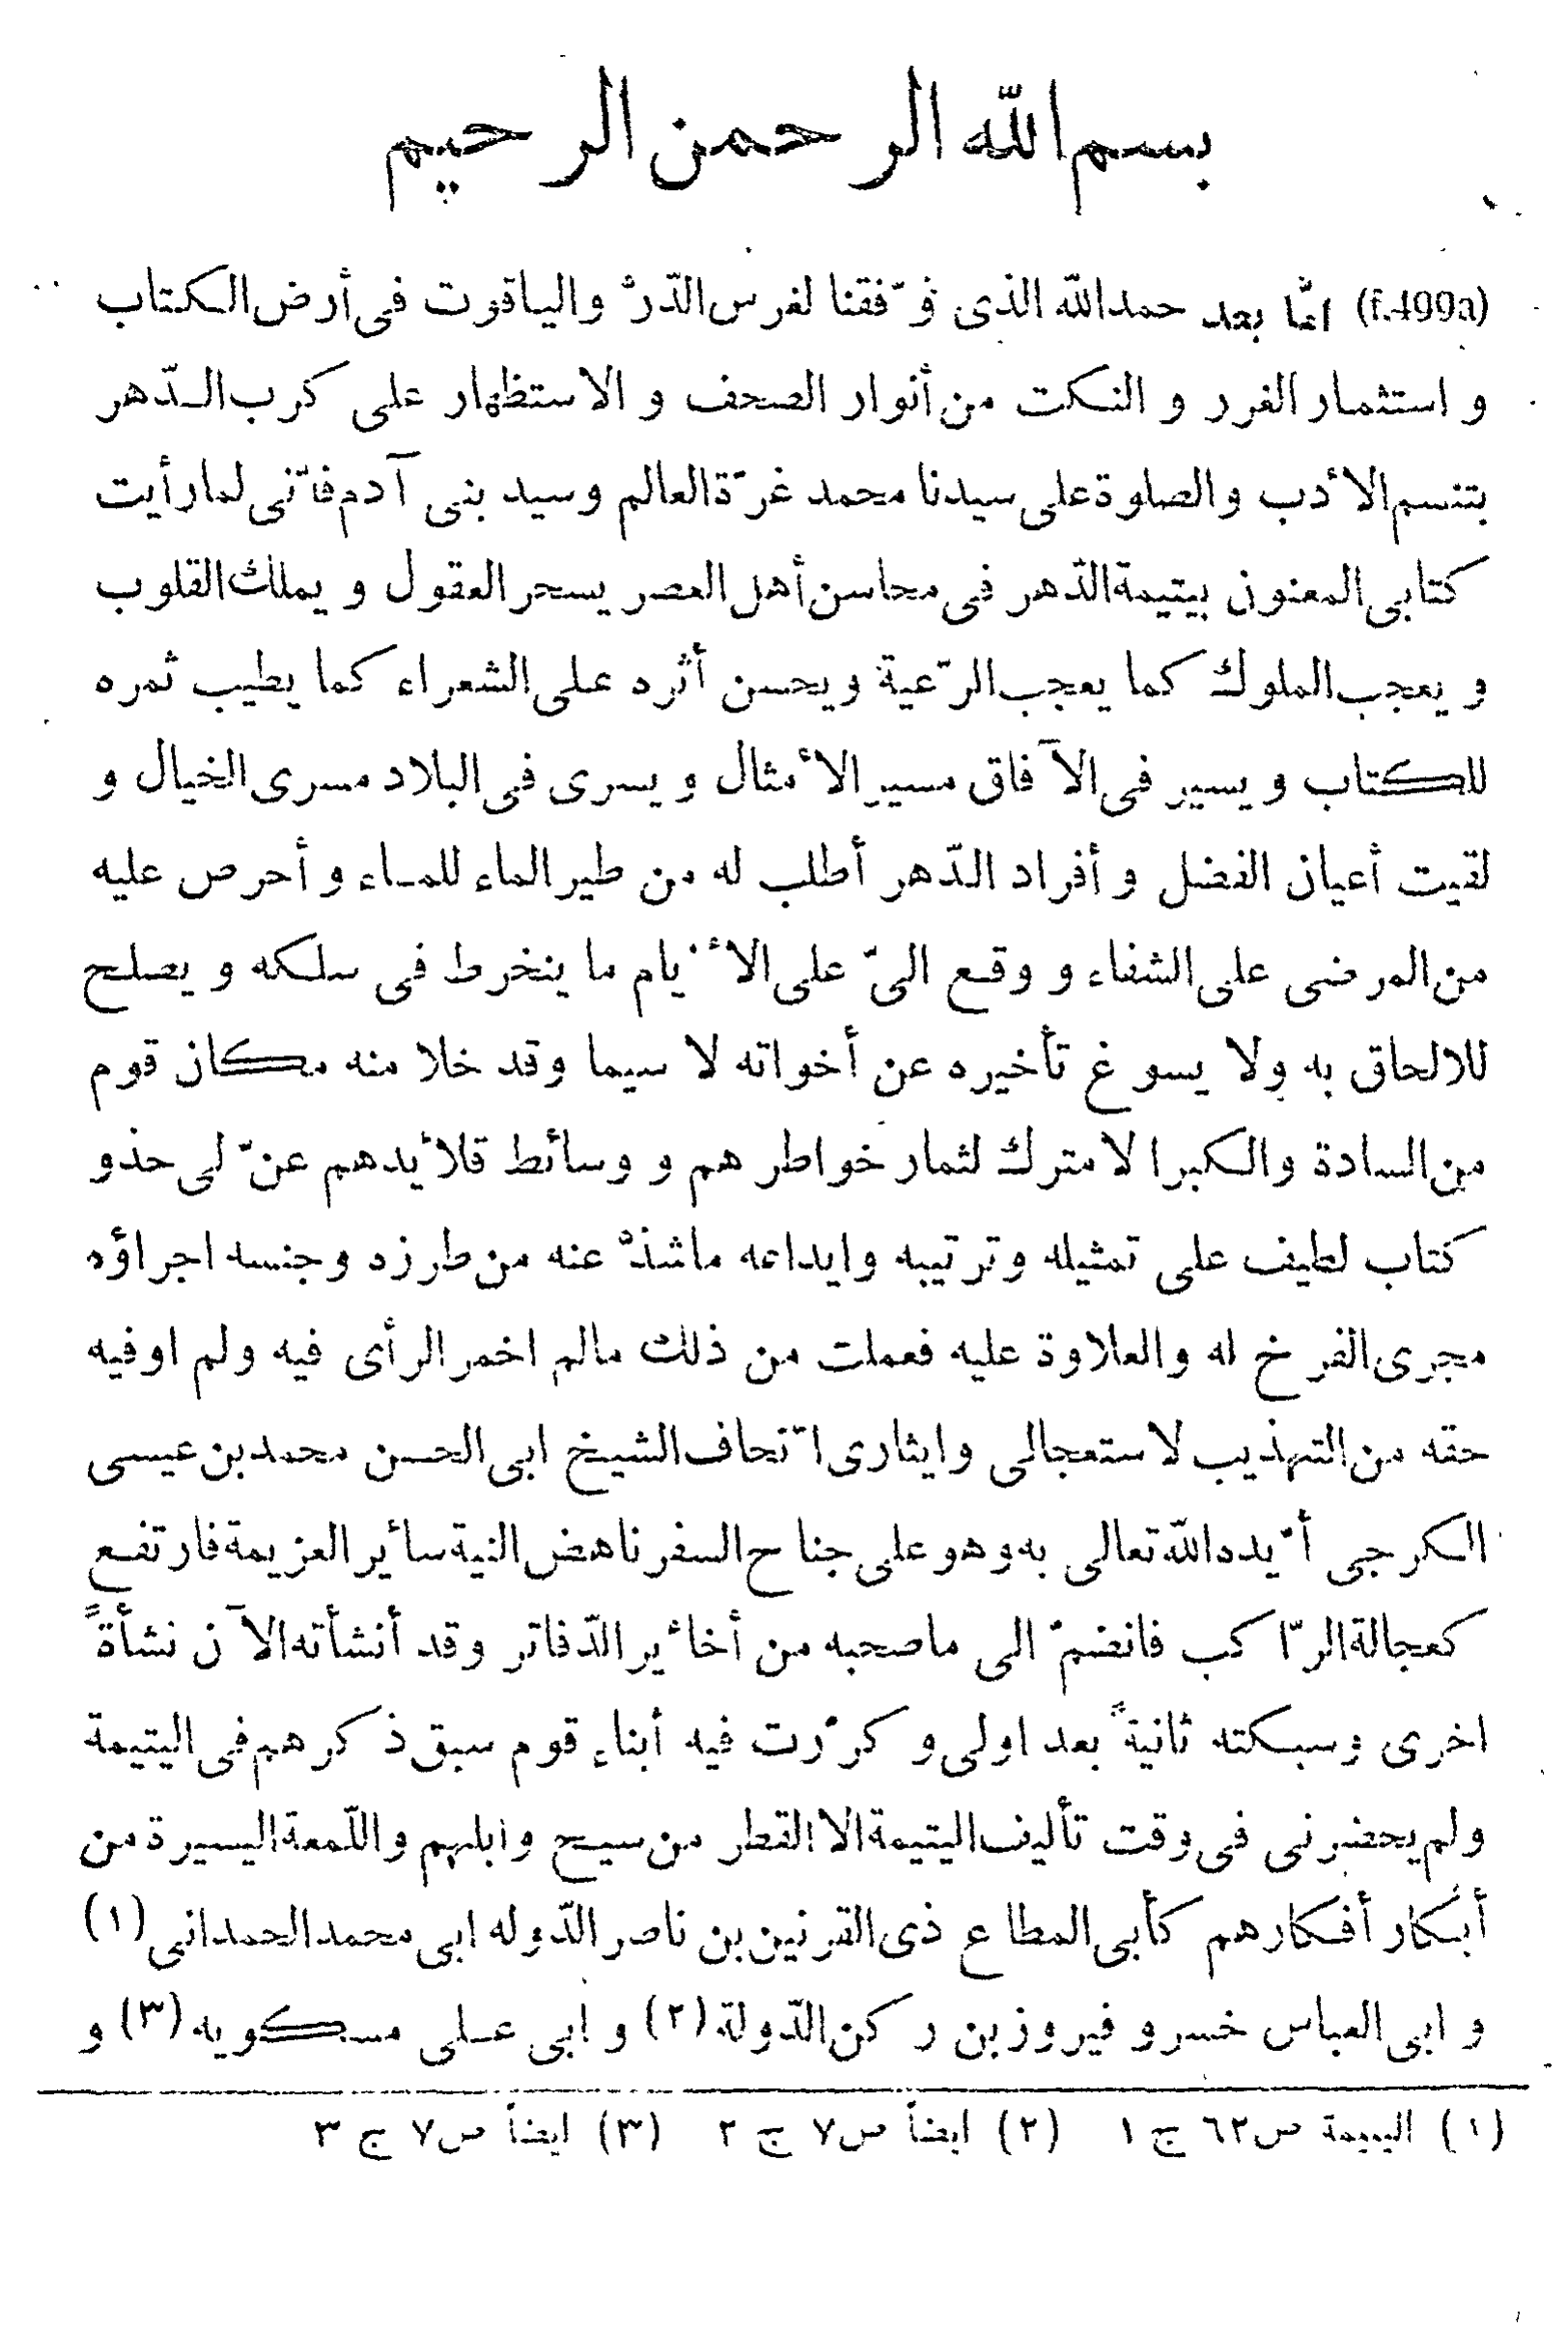 بسم الله الرحمن الرحيم
(f.499a) امّا بعد حمدالله الذى وّفقنا لغرس الدّرّ والياقوت فى أرض الكتاب
و استثمار الغرر و النكت من أنوار الصحف و الاستظهار على كرب الدّهر
بتنسم الأدب والصلوة على سيدنا محمد غرّة العالم وسيد بنى آدم فانّى لما رأيت
كتابى المعنون بيتيمة الدّهر فى محاسن أهل العصر يسحر العقول و يملك القلوب
و يعجب الملوك كما يعجب الرّعية ويحسن أثره على الشعراء كما يطيب ثمره
للكتاب و يسير فى الآفاق مسير الأمثال و يسرى فى البلاد مسرى الخيال و
لقيت أعيان الفضل و أفراد الدّهر أطلب له من طير الماء للماء و أحرص عليه
من المرضى على الشفاء و وقع الىّ على الأيام ما ينخرط فى سلكه و يصلح
للالحاق به ولا يسوغ تأخيره عن أخواته لا سيما وقد خلا منه مكان قوم
من السادة والكبرا لا مترك لثمار خواطرهم و وسائط قلائدهم عنّ لى حذو
كتاب لطيف على تمثيله وترتيبه وايداعه ماشذّ عنه من طرزه وجنسه اجراؤه
مجرى الفرخ له والعلاوة عليه فعملت من ذلك مالم اخمر الرأى فيه ولم اوفيه
حقه من التهذيب لاستعجالى وايثارى اتّحاف الشيخ ابى الحسن محمد بن عيسى
الكرجى أيّده الله تعالى به وهو على جناح السفر ناهض النية سائر العزيمة فارتفع
كعجالة الرّاكب فانضمّ الى ماصحبه من أخائير الدّفاتر وقد أنشأته الآن نشأةً
اخرى وسبكته ثانيةً بعد اولى و كرّرت فيه أبناء قوم سبق ذكرهم فى اليتيمة
ولم يحضرنى فى وقت تأليف اليتيمة الا القطر من سيح وابلهم واللّمعة اليسيرة من
أبكار أفكارهم كأبى المطاع ذى القرنين بن ناصر الدّوله ابى محمد الحمدانى (١)
و ابى العباس خسرو فيروز بن ركن الدّولة (٢) و ابى على مسكويه (٣) و
(١) اليتيمة ص٦٢ ج ١ (٢) ايضاً ص٧ ج ٢ (٣) ايضاً ص٧ ج ٣